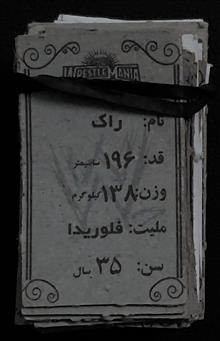 WRESTLEMANIA
نام: راک
قد: ۱۹۶ سانتیمتر
وزن: ۱۳۸ کیلوگرم
ملیت: فلوریدا
سن: ۳۵ سال